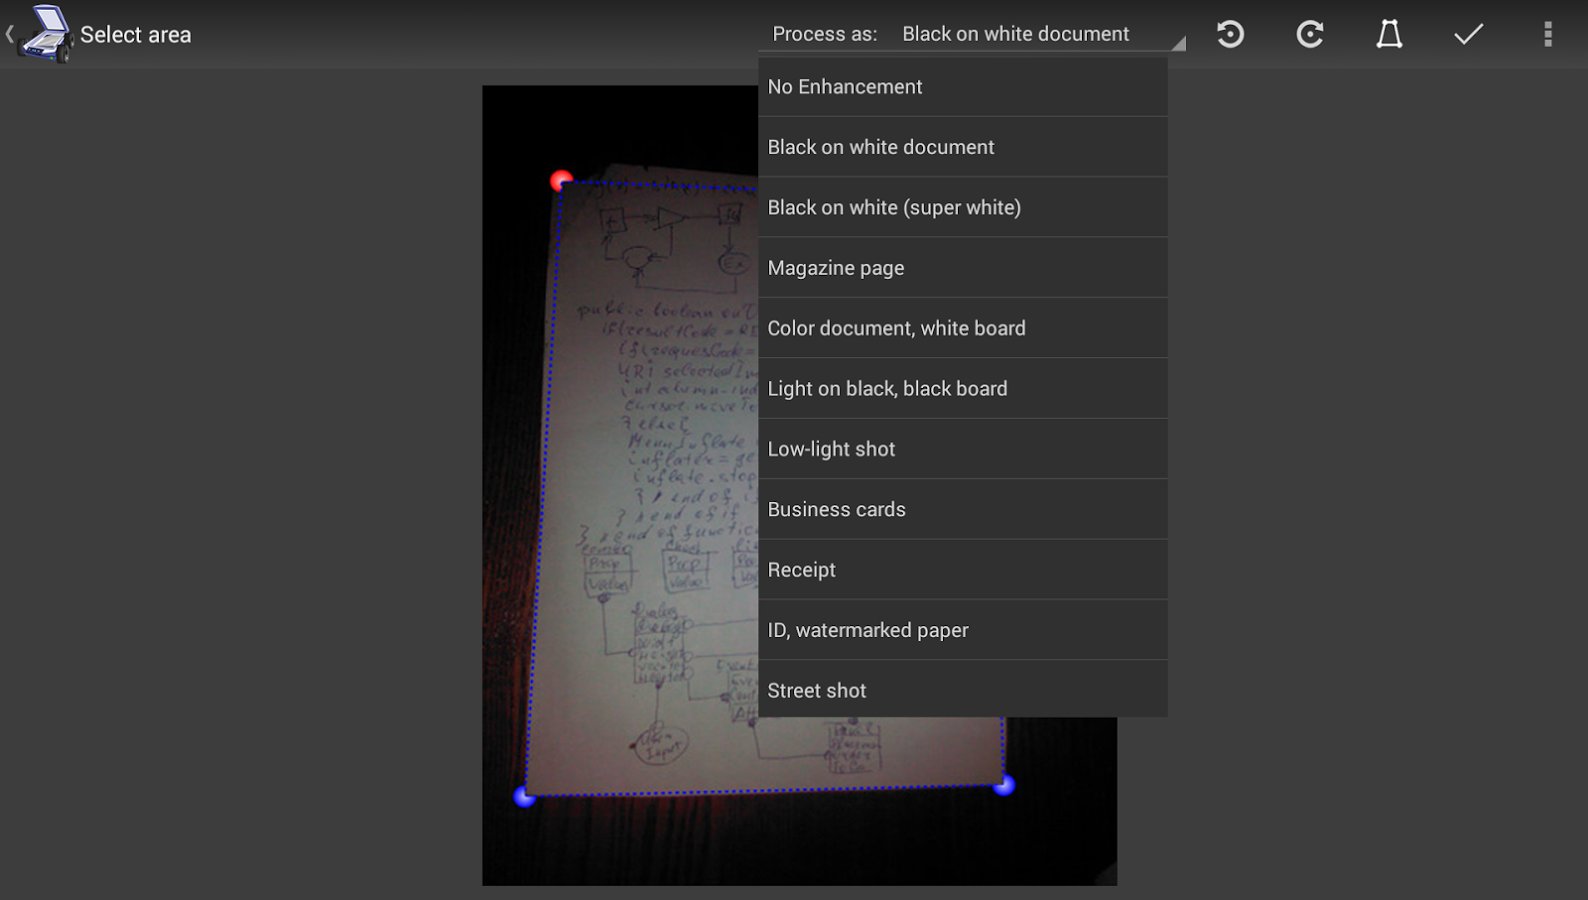 Select area
Process as: Black on white document
No Enhancement
Black on white document
Black on white (super white)
Magazine page
Color document, white board
Light on black, black board
Low-light shot
Business cards
Receipt
ID, watermarked paper
Street shot
public boolean
if(resultCode =
URI selected
int column-ind
cursor.moveTo
} else {
Menu Inflate
inflater = ge
inflate.stop
} / end of if
} / end of if
} / end of functio
Prop
Prop
Value
Value
Dialog
User
Input